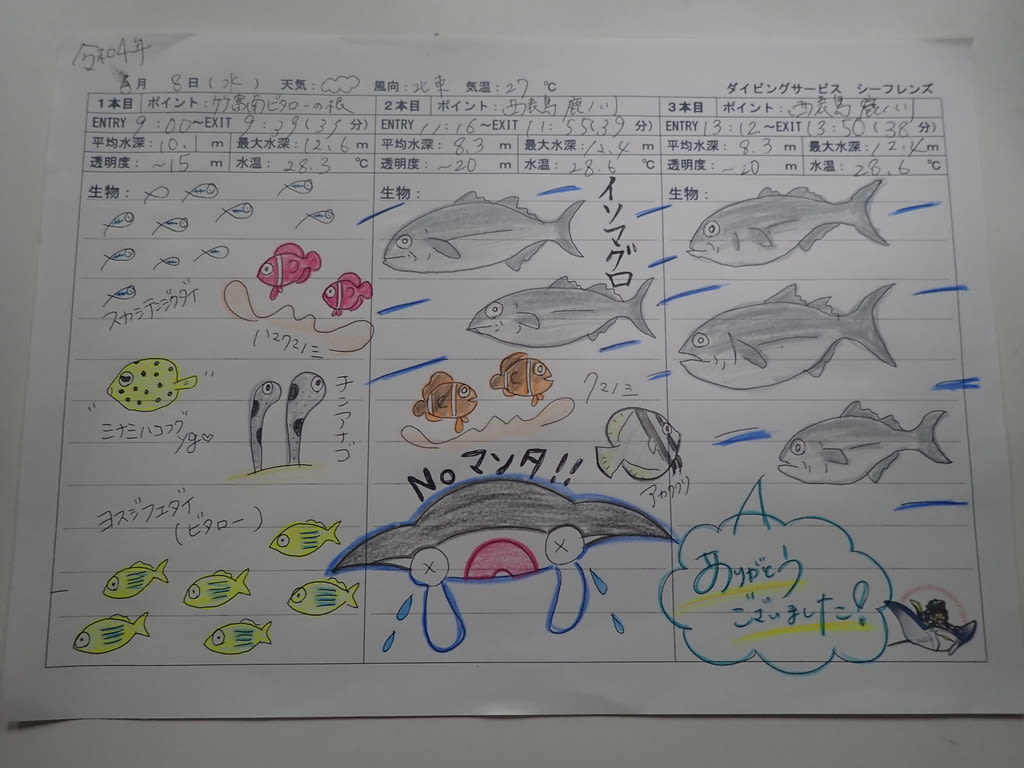 令和4年
月 8日(水) 天気: 風向:北東 気温:27 ℃ ダイビングサービス シーフレンズ
1本目 ポイント:竹富南ビタローの根
ENTRY 9:00~EXIT 9:39(35分)
平均水深:10.1 m 最大水深:12.6 m
透明度:~15 m 水温:28.3 ℃
生物:
スカシテンジクダイ
ハマクマノミ
ミナミハコフグ
yg♡
チンアナゴ
ヨスジフエダイ
(ビタロー)
2本目 ポイント:西表島 鹿ノ川
ENTRY 11:16~EXIT 11:55(39分)
平均水深:8.3 m 最大水深:12.4 m
透明度:~20 m 水温:28.6 ℃
生物:
イソマグロ
クマノミ
アカククリ
NO マンタ!!
3本目 ポイント:西表島 鹿ノ川
ENTRY 13:12~EXIT 13:50(38分)
平均水深:8.3 m 最大水深:12.4 m
透明度:~20 m 水温:28.6 ℃
生物:
ありがとう
ございました!